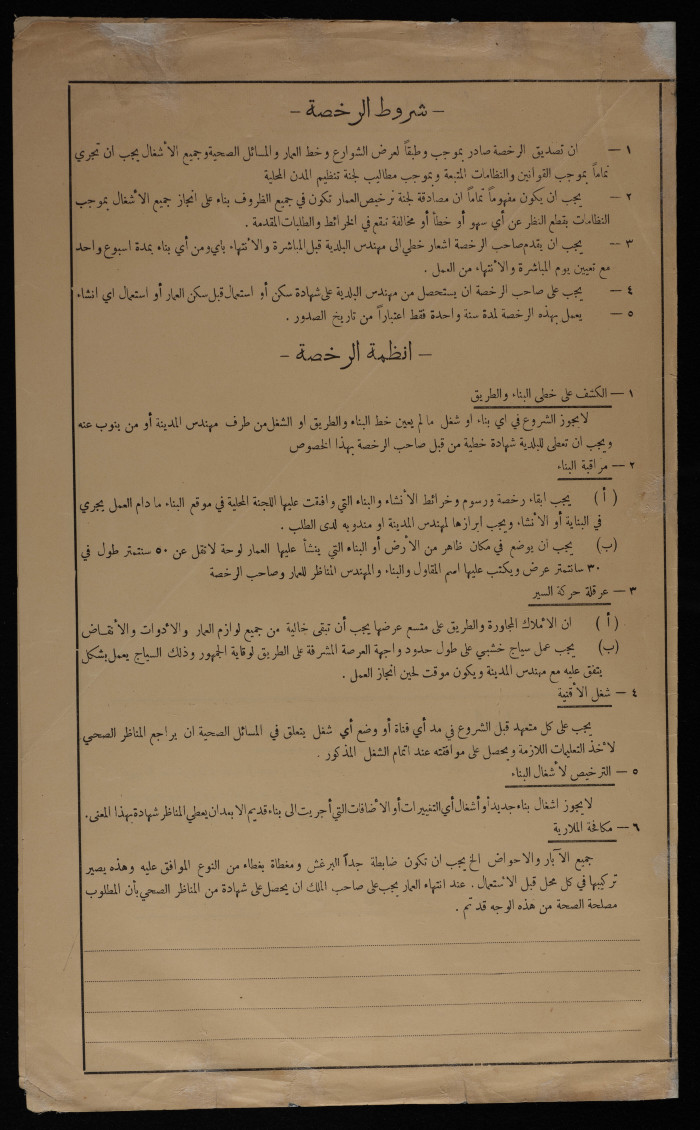 – شروط الرخصة –
١ – ان تصديق الرخصة صادر بموجب وطبقاً لعرض الشوارع وخط العمار والمسائل الصحية وجميع الأشغال يجب ان تجري
تماماً بموجب القوانين والنظامات المتبعة وبموجب مطاليب لجنة تنظيم المدن المحلية
٢ – يجب ان يكون مفهوماً تماماً ان مصادقة لجنة ترخيص العمار تكون في جميع الظروف بناء على انجاز جميع الأشغال بموجب
النظامات بقطع النظر عن أي سهو أو خطأ أو مخالفة تقع في الخرائط والطلبات المقدمة .
٣ – يجب ان يقدم صاحب الرخصة اشعار خطي الى مهندس البلدية قبل المباشرة والأنتهاء باي ومن أي بناء بمدة اسبوع واحد
مع تعيين يوم المباشرة والأنتهاء من العمل .
٤ – يجب على صاحب الرخصة ان يستحصل من مهندس البلدية على شهادة سكن أو استعمال قبل سكن العمار أو استعمال اي انشاء
٥ – يعمل بهذه الرخصة لمدة سنة واحدة فقط اعتباراً من تاريخ الصدور .
– انظمة الرخصة –
١ – الكشف على خطي البناء والطريق
لا يجوز الشروع في اي بناء او شغل ما لم يعين خط البناء والطريق او الشغل من طرف مهندس المدينة أو من ينوب عنه
ويجب ان تعطى للبلدية شهادة خطية من قبل صاحب الرخصة بهذا الخصوص
٢ – مراقبة البناء
( أ ) يجب ابقاء رخصة ورسوم وخرائط الأنشاء والبناء التي وافقت عليها اللجنة المحلية في موقع البناء ما دام العمل يجري
في البناية أو الأنشاء ويجب ابرازها لمهندس المدينة او مندوبه لدى الطلب .
(ب) يجب ان يوضع في مكان ظاهر من الأرض أو البناء التي ينشأ عليها العمار لوحة لا تقل عن ٥٠ سنتمتر طول في
٣٠ سانتمتر عرض ويكتب عليها اسم المقاول والبناء والمهندس المناظر للعمار وصاحب الرخصة
٣ – عرقلة حركة السير
( أ ) ان الأملاك المجاورة والطريق على متسع عرضها يجب أن تبقى خالية من جميع لوازم العمار والادوات والأنقاض
(ب) يجب عمل سياج خشبي على طول حدود واجهة العرصة المشرفة على الطريق لوقاية الجمهور وذلك السياج يعمل بشكل
يتفق عليه مع مهندس المدينة ويكون موقت لحين انجاز العمل .
٤ – شغل الأقنية
يجب على كل متعهد قبل الشروع في مد أي قناة أو وضع أي شغل يتعلق في المسائل الصحية ان يراجع المناظر الصحي
لأخذ التعليمات اللازمة ويحصل على موافقته عند اتمام الشغل المذكور .
٥ – الترخيص لأشغال البناء
لا يجوز اشغال بناء جديد أو أشغال أي التغييرات أو الأضافات التي أجريت الى بناء قديم الا بعد ان يعطي المناظر شهادة بهذا المعنى.
٦ – مكافحة الملاريا
جميع الآبار والاحواض الخ يجب ان تكون ضابطة جداً البرغش ومغطاة بغطاء من النوع الموافق عليه وهذه يصير
تركيبها في كل محل قبل الأستعمال . عند انتهاء العمار يجب على صاحب الملك ان يحصل على شهادة من المناظر الصحي بأن المطلوب
مصلحة الصحة من هذه الوجه قد تم .